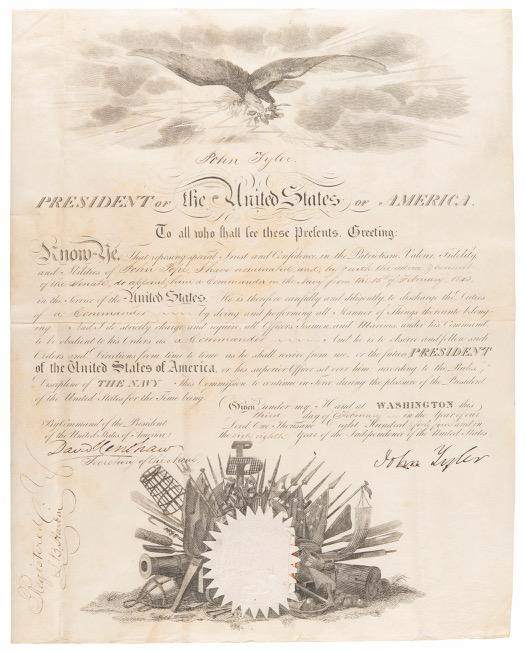 John Tyler.
PRESIDENT OF the United States OF AMERICA.
To all who shall see these Presents, Greeting:
Know Ye, That reposing special Trust and Confidence in the Patriotism, Valour, Fidelity
and Abilities of John Pope, I have nominated and, by & with the advice & consent
of the Senate, do appoint him a Commander in the Navy from the 15th of February 1843,
in the Service of the United States. He is therefore carefully and diligently to discharge the Duties
of a Commander by doing and performing all Manner of Things thereunto belong-
ing. And I do strictly charge and require all Officers, Seamen and Marines under his Command
to be obedient to his Orders as a Commander And he is to observe and follow such
Orders and Directions from time to time as he shall receive from me, or the future PRESIDENT
of the United States of America, or his Superior Officer set over him, according to the Rules &
Discipline of THE NAVY. This Commission to continue in force during the pleasure of the President
of the United States for the Time being.
Given under my Hand at WASHINGTON this
third day of February in the Year of our
Lord One Thousand Eight Hundred forty four and in
the sixty eighth Year of the Independence of the United States
By Command of the President
of the United States of America
David Henshaw
Secretary of the Navy.
John Tyler
Registered